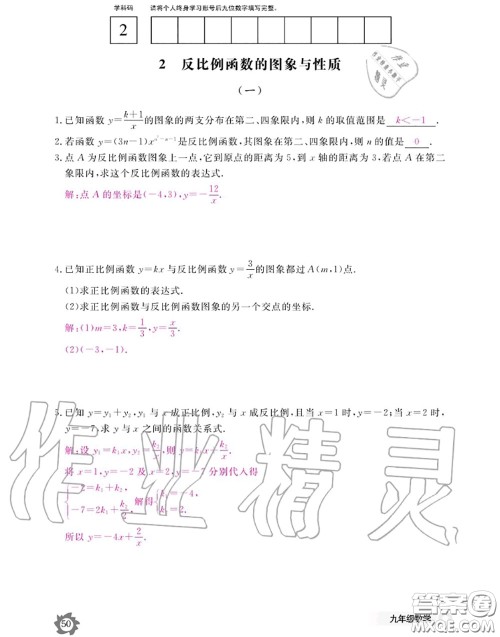 学科码　请将个人终身学习账号后九位数字填写完整。
2
2　反比例函数的图象与性质
(一)
1.已知函数 y=(k+1)/x 的图象的两支分布在第二、四象限内，则 k 的取值范围是 k<-1 .
2.若函数 y=(3n-1)x^(n²-n-1) 是反比例函数，其图象在第二、四象限内，则 n 的值是 0 .
3.点 A 为反比例函数图象上一点，它到原点的距离为 5，到 x 轴的距离为 3，若点 A 在第二
象限内，求这个反比例函数的表达式.
解：点 A 的坐标是(-4,3)，y=-12/x.
4.已知正比例函数 y=kx 与反比例函数 y=3/x 的图象都过 A(m,1)点.
(1)求正比例函数的表达式.
(2)求正比例函数与反比例函数图象的另一个交点的坐标.
解：(1)m=3，k=1/3，y=x/3.
(2)(-3，-1).
5.已知 y=y₁+y₂，y₁ 与 x 成正比例，y₂ 与 x 成反比例，且当 x=1 时，y=-2；当 x=2 时，
y=-7.求 y 与 x 之间的函数关系式.
解：设 y₁=k₁x，y₂=k₂/x，则 y=k₁x+k₂/x.
将 x=1，y=-2 及 x=2，y=-7 分别代入得
-2=k₁+k₂，
-7=2k₁+k₂/2，
解得 k₁=-4，
k₂=2.
所以 y=-4x+2/x.
作业精灵
50
九年级数学